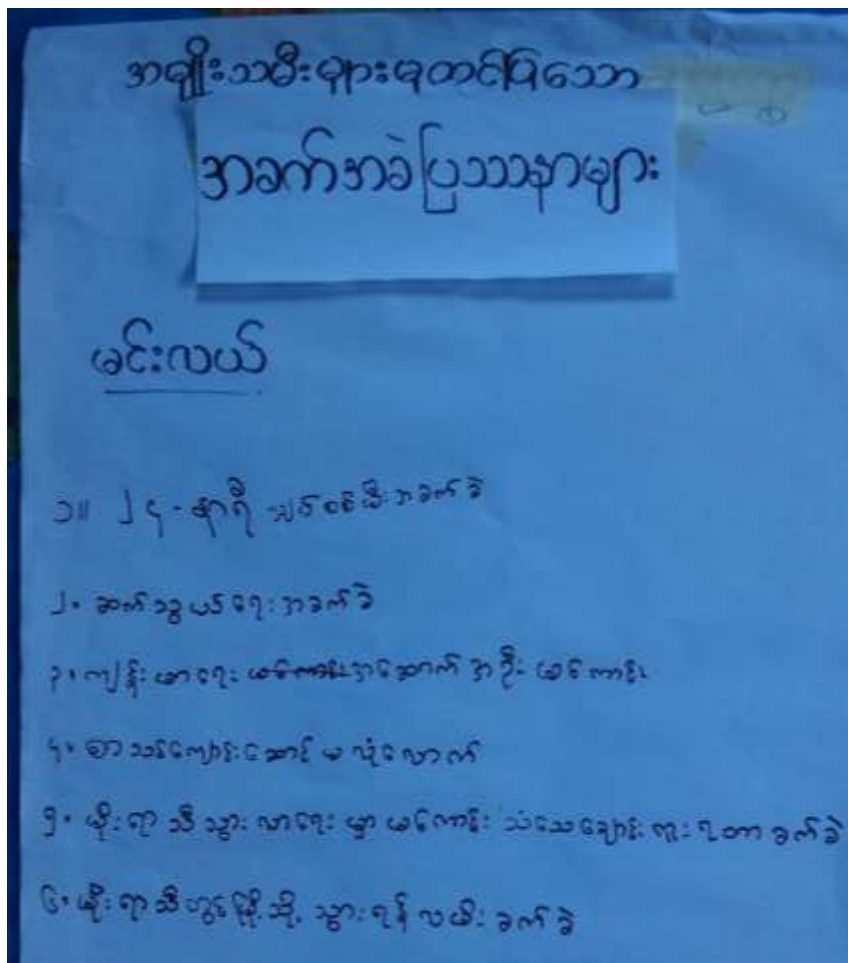 အမျိုးသမီးများမှတင်ပြသော
အခက်အခဲပြဿနာများ
မင်းလယ်
၁။ ၂၄-နာရီ လျှပ်စစ်မီးအခက်ခဲ
၂။ ဆက်သွယ်ရေးအခက်ခဲ
၃။ ကျန်းမာရေး အဆောက်အဦး မကောင်း
၄။ စာသင်ကျောင်းဆောင် မလုံလောက်
၅။ မိုးရာသီသွားလာရေးမှာ မကောင်း သဲသေချောင်းကူးရတာခက်ခဲ
၆။ မိုးရာသီတွင် သို့သွားရန်လမ်းခက်ခဲ